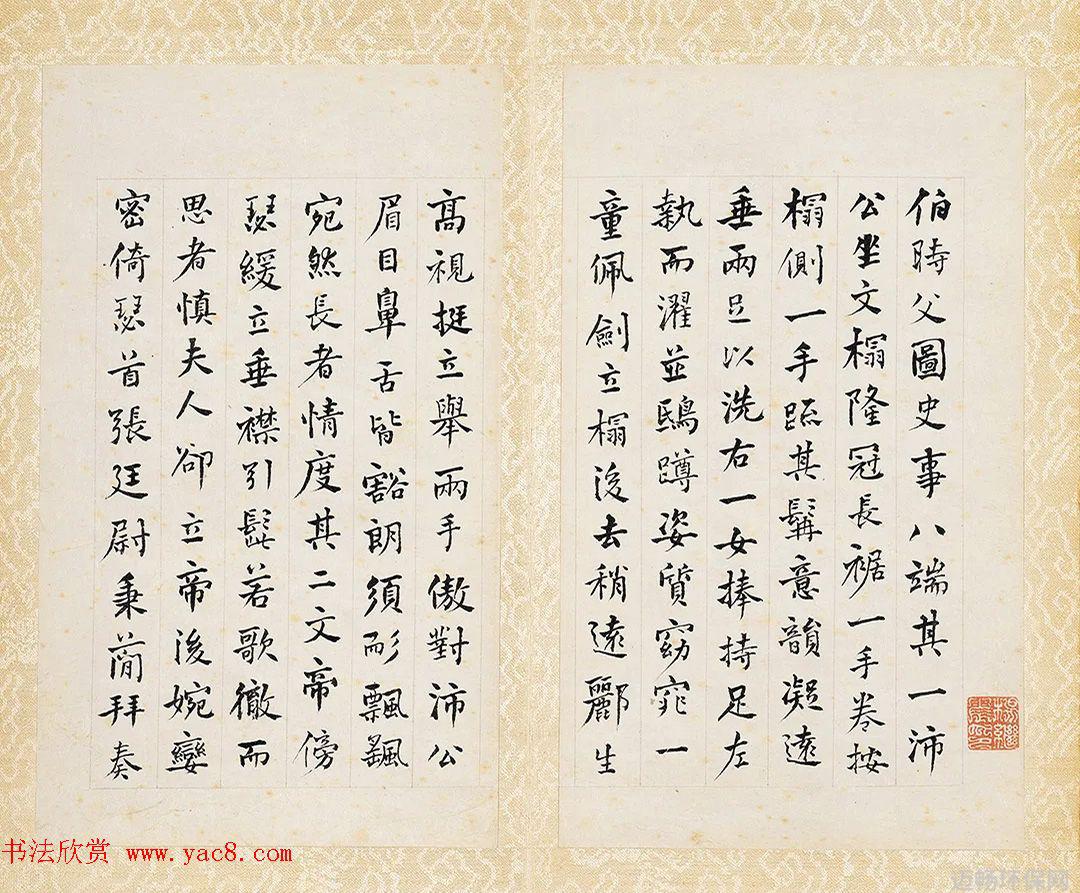 伯時父圖史事八端其一沛
公坐文榻隆冠長裾一手卷按
榻側一手䟽其髯意韻凝遠
垂兩足以洗右一女捧持足左
執而濯並鴟蹲姿質窈窕一
童佩劍立榻後去稍遠酈生
高視挺立舉兩手傲對沛公
眉目鼻舌皆豁朗須耏飄颻
宛然長者情度其二文帝傍
瑟緩立垂襟引髭若歌徹而
思者慎夫人卻立帝後婉孌
密倚瑟首張廷尉秉蕳拜奏
书法欣赏 www.yac8.com
迈畅环保网